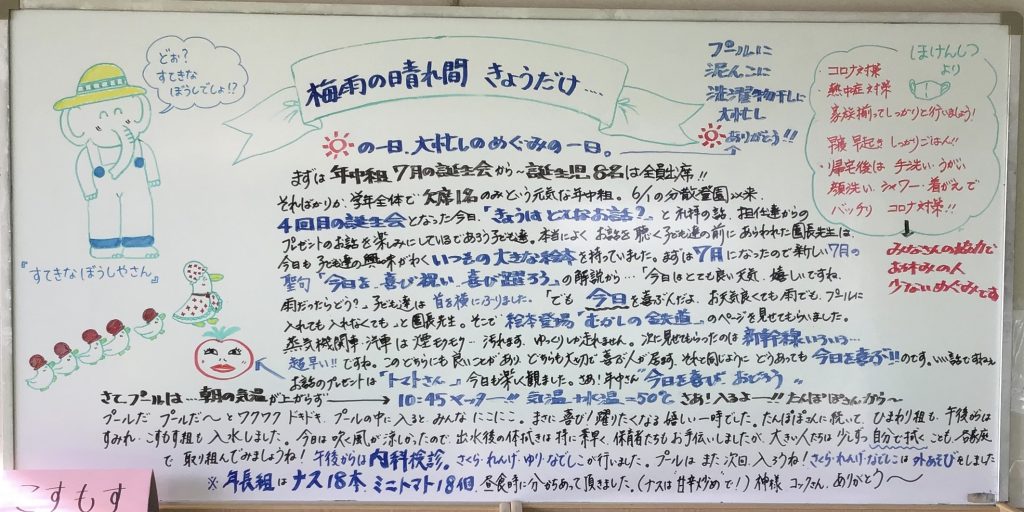 どぉ?
すてきな
ぼうしでしょ!?
梅雨の晴れ間 きょうだけ‥‥
プールに
泥んこに
洗濯物干しに
大忙し
ありがとう!!
ほけんしつ
より
・コロナ対策
・熱中症対策
家族揃ってしっかりと行いましょう!
早寝 早起き しっかりごはん!!
・帰宅後は 手洗い・うがい
顔洗い・シャワー・着がえで
バッチリ コロナ対策!!
みなさんの協力で
お休みの人
少ないめぐみです
の一日、大忙しのめぐみの一日。
まずは 年中組 7月の誕生会から〜誕生児 8名は全員出席!!
そればかりか、学年全体で欠席1名のみという元気な年中組。6/1の分散登園以来、
4回目の誕生会となった今日、「きょうは どんなお話?」と礼拝の話、担任達からの
プレゼントのお話を楽しみにしているであろう子ども達。本当によくお話を聴く子ども達の前にあらわれた園長先生は、
今日も子ども達の興味がわく いつもの大きな絵本を持っていました。まずは7月になったので新しい7月の
聖句「今日を、喜び祝い、喜び躍ろう」の解説から‥「今日はとても良い天気、嬉しいですね。
雨だったらどう?」子ども達は 首を横にふりました。「でも 今日を喜ぶんだよ。お天気良くても雨でも、プールに
入れても入れなくても。」と園長先生。そこで 絵本登場「むかしの鉄道」のページを見せてもらいました。
蒸気機関車・汽車は 煙モクモク‥汚れます、ゆっくりしか走れません。次に見せもらったのは 新幹線いろいろ‥
超早い!!ですね。このどちらにも良いことがあり どちらも大切で喜ぶ人が居ます。それと同じように どうあっても 今日を喜ぶ!!のです。いい話ですねぇ
お話のプレゼントは「トマトさん」今日も楽しく観ました。さあ!年中さん“今日を喜び おどろう”
『すてきなぼうしやさん』
さてプールは‥‥朝の気温が上がらず 10:45 マッター!! 気温+水温=50℃ さあ!入るよー!!たんぽぽさんから〜
プールだ プールだ〜とワクワク ドキドキ、プールの中に入ると みんな にこにこ。まさに喜び!躍りたくなる嬉しい一時でした。たんぽぽさんに続いて、ひまわり組も、午後からは
すみれ・こすもす組も 入水しました。今日は吹く風が涼しかったので、出水後の体拭きは特に素早く、保育者たちもお手伝いしましたが、大きい人たちは 少しずつ自分で拭くことも、各家庭
で 取り組んでみましょうね!午後からは内科検診。さくら・れんげ・ゆり・なでしこが行いました。プールは また次回、入ろうね!さくら・れんげ・なでしこは 外あそびをしました
※年長組は ナス18本、ミニトマト18個、昼食時に分かちあって頂きました。(ナスは甘辛炒めで!)神様 コックさん、ありがとう〜
こすもす